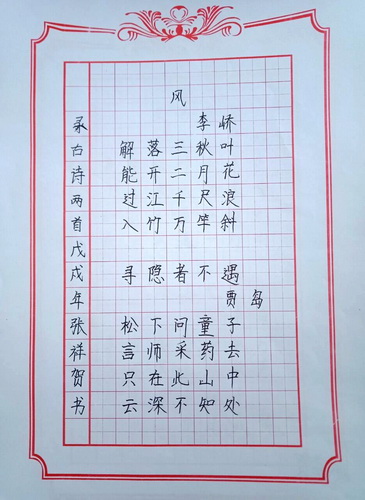 风
李峤
解落三秋叶
能开二月花
过江千尺浪
入竹万竿斜
寻隐者不遇
贾岛
松下问童子
言师采药去
只在此山中
云深不知处
录古诗两首戊戌年张祥贺书